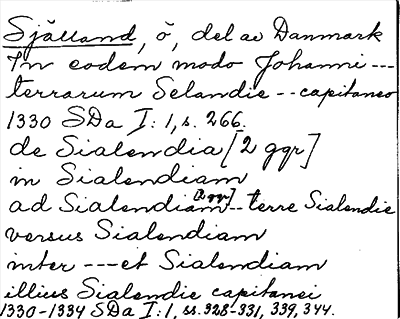 Själland, ö, del av Danmark
In eodem modo Johanni ---
terrarum Selandie -- capitaneo
1330 SDa I:1, s. 266.
de Sialendia [2 ggr]
in Sialendiam
ad Sialendiam [2 ggr] -- terre Sialendie
versus Sialendiam
inter --- et Sialendiam
illius Sialendie capitanei
1330-1334 SDa I:1, ss. 328-331, 339, 344.